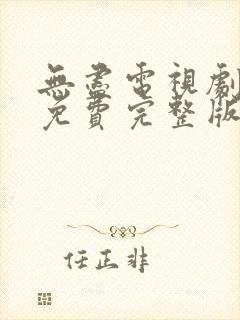 無盡電視劇
免費完整版
任正非